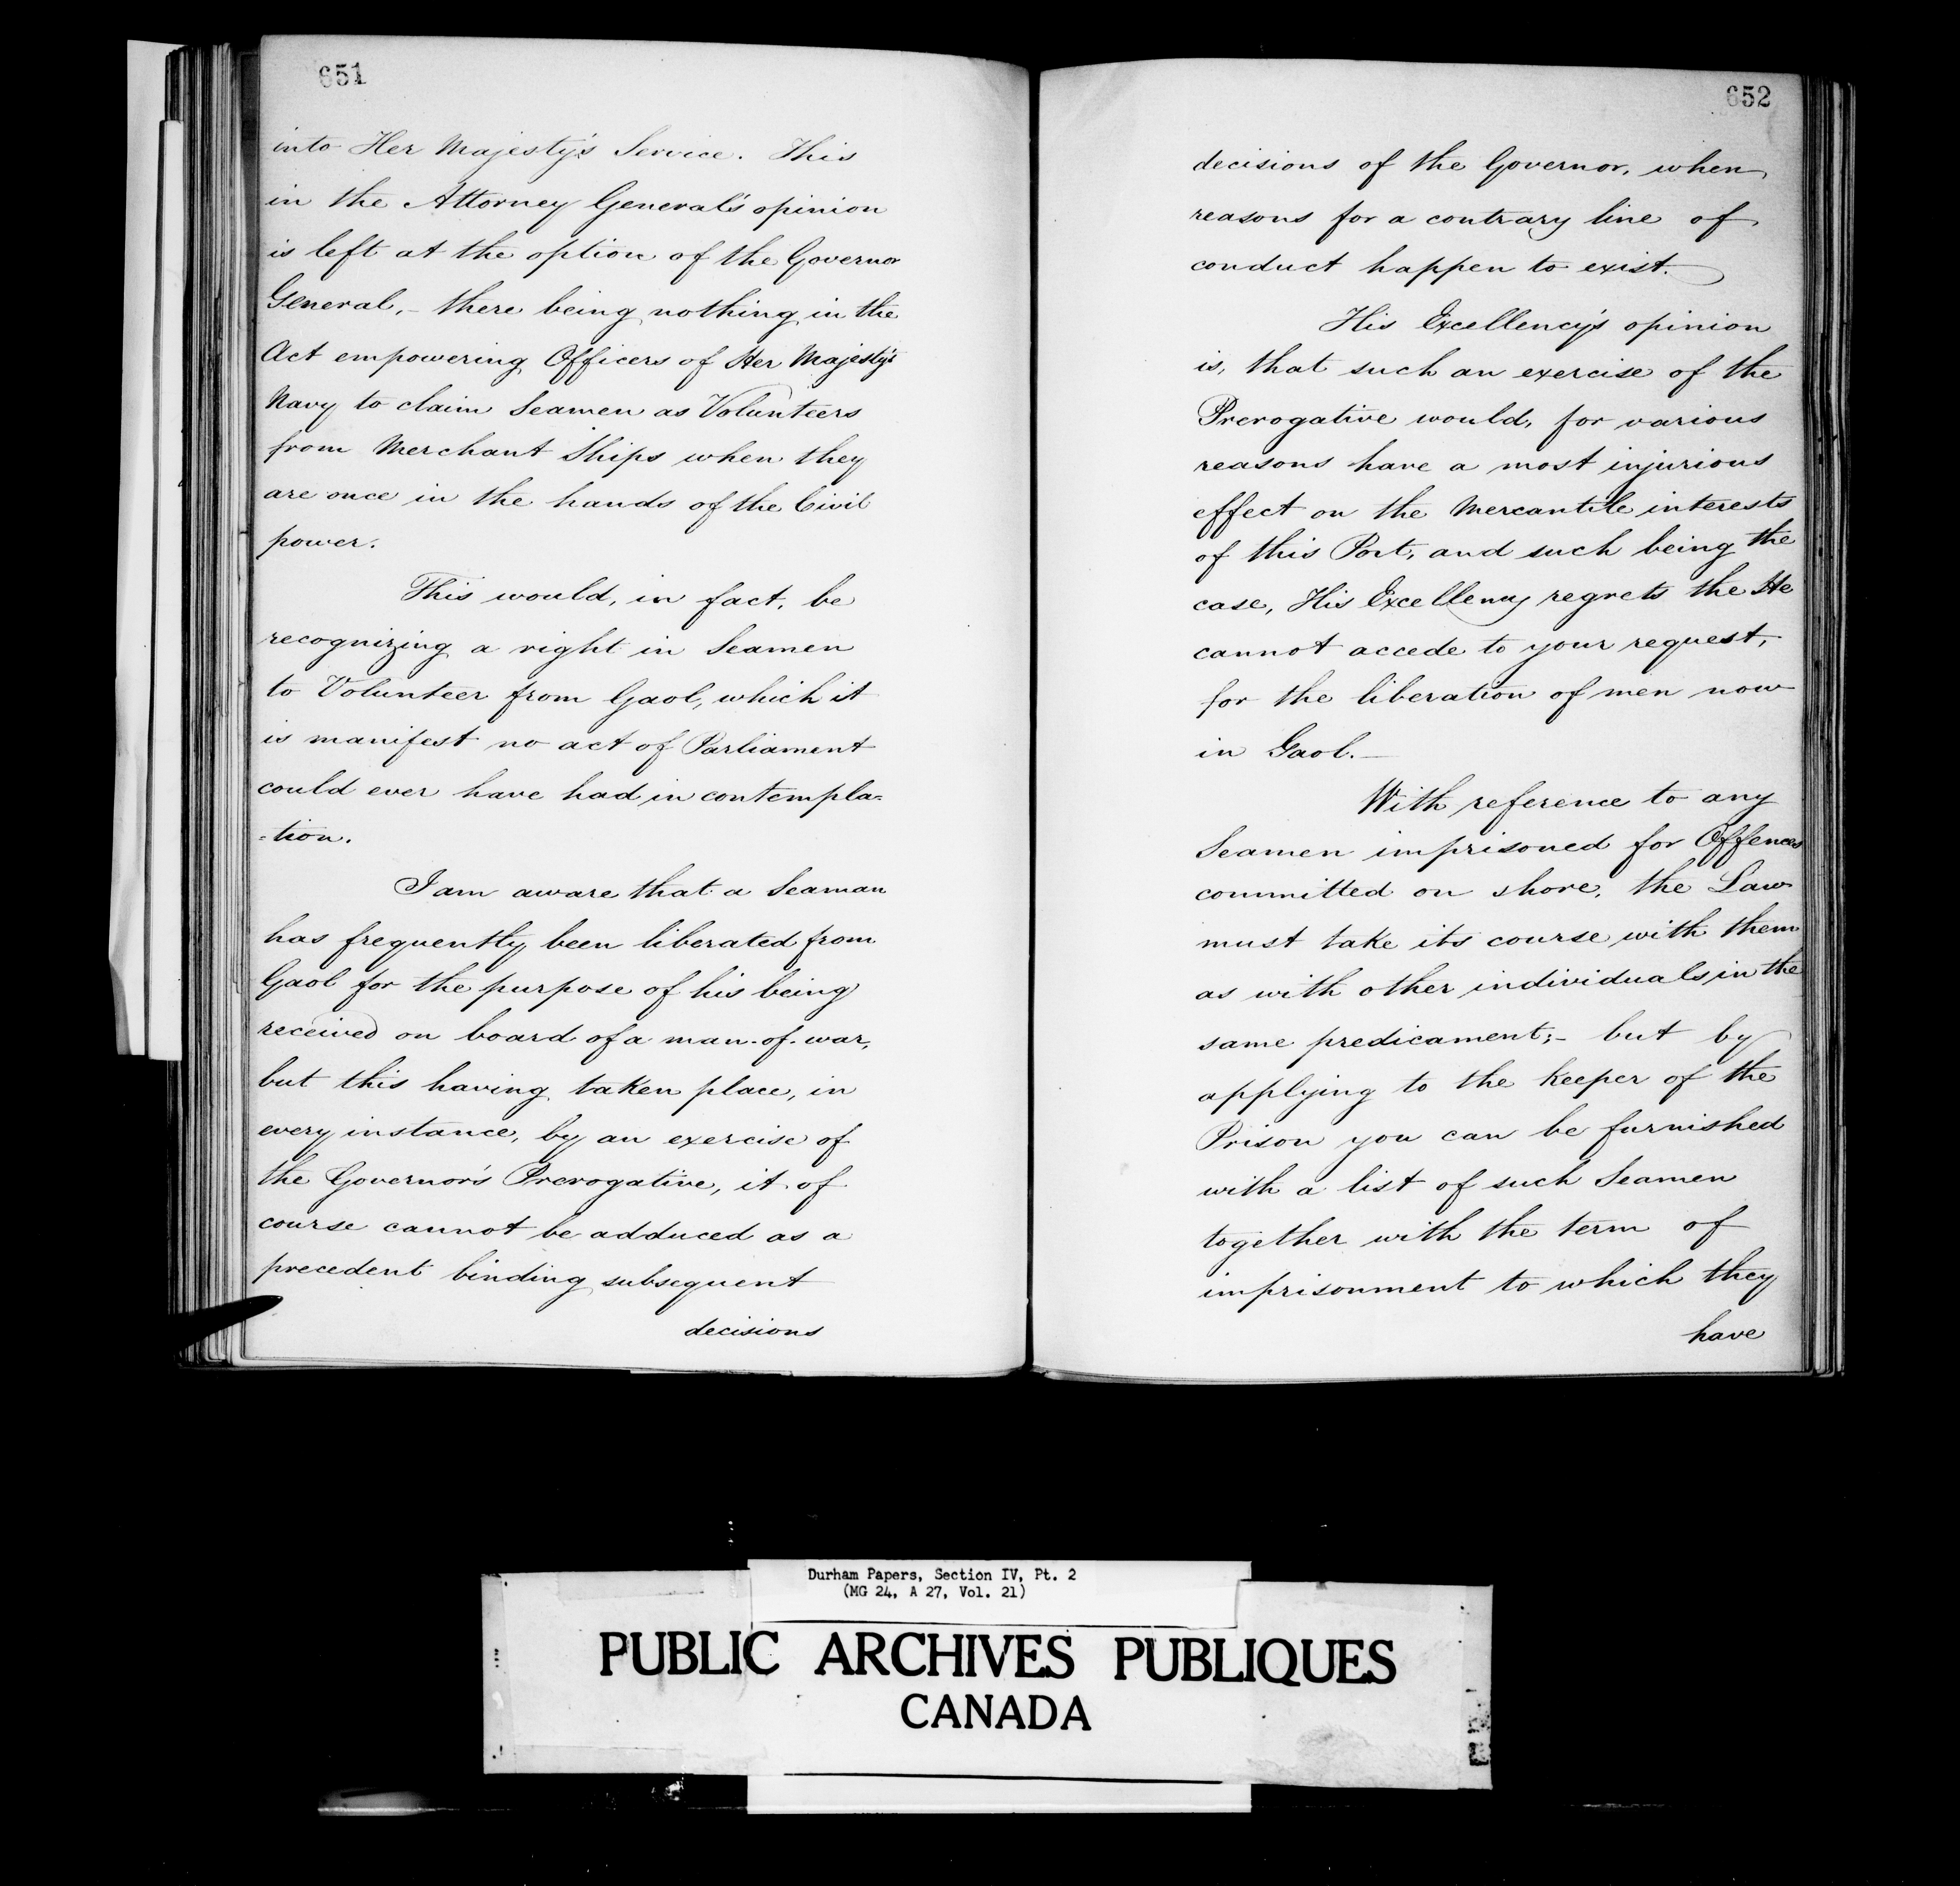 651
into Her Majesty's Service. This
in the Attorney General's opinion
is left at the option of the Governor
General, - there being nothing in the
Act empowering Officers of Her Majesty's
Navy to claim Seamen as Volunteers
from Merchant Ships when they
are once in the hands of the Civil
power.
This would, in fact, be
recognizing a right in Seamen
to Volunteer from Gaol, which it
is manifest no act of Parliament
could ever have had in contempla=
=tion.
I am aware that a Seaman
has frequently been liberated from
Gaol for the purpose of his being
received on board of a man-of-war,
but this having taken place, in
every instance, by an exercise of
the Governor's Prerogative, it of
course cannot be adduced as a
precedent binding subsequent
decisions
652
decisions of the Governor, when
reasons for a contrary line of
conduct happen to exist.
His Excellency's opinion
is, that such an exercise of the
Prerogative would, for various
reasons have a most injurious
effect on the Mercantile interests
of this Port, and such being the
case, His Excellency regrets the He
cannot accede to your request,
for the liberation of men now
in Gaol. -
With reference to any
Seamen imprisoned for Offences
committed on shore, the Law
must take its course with them
as with other individuals in the
same predicament; - but by
applying to the Keeper of the
Prison you can be furnished
with a list of such Seamen
together with the term of
imprisonment to which they
have
Durham Papers, Section IV, Pt. 2
(MG 24, A 27, Vol. 21)
PUBLIC ARCHIVES PUBLIQUES
CANADA